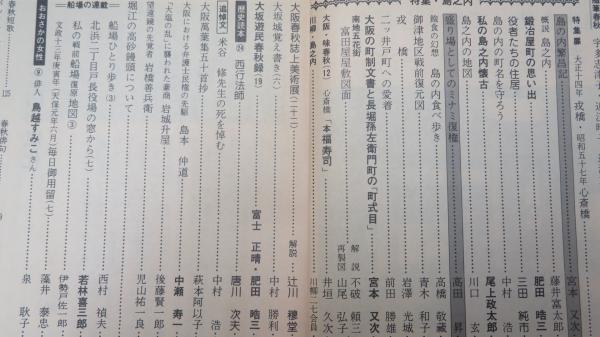 随筆春秋
特集扉 大正十四年 戎橋・昭和五十七年 心斎橋
島の内繁昌記 宮本 又次
概説 島之内 藤井富太郎
鍛冶屋町の思い出 肥田 晧三
役者たちの住居 三田 純市
島の内の町名を守ろう 中村 浩
私の島之内懐古 尾上政太郎
島之内の地図 川口 玄
盛り場としてのミナミ復権 高田 昇
飽食の幻想 島の内食べ歩き 高橋 敬蔵
御津地区戦前復元図 青木 和子
戎橋 岩澤 光城
二ッ井戸町への愛着 前田 勝雄
大阪の町制文書と長堀孫左衛門町の「町式目」 宮本 又次
南地五花街
富田屋屋敷図面 解説 不破 頼三
再製図 山尾 弘子
大阪・味春秋(12) 心斎橋「本福寿司」 井垣 久次
川柳・島之内 川柳二七会会員
大阪春秋誌上美術展(二十二) 解説 辻川 穆堂
大坂城覚え書き(六) 中村 勝利
大坂遊民春秋録⑲ 富士 正晴・肥田 晧三
歴史読本㉔ 西行法師 唐川 次夫
追悼文 米谷 修先生の死を悼む 中村 浩
大阪萬葉集五十首抄 萩本阿以子
大阪における弁護士民権の先駆 島本 仲道 中瀬 寿一
「大塩の乱」に襲われた豪商 岩城升屋 後藤賢一郎
望遠鏡の先覚者 岩橋善兵衛 児山祐一良
堀江の高砂饅頭について 西村 禎夫
船場の連載
船場ひとり歩き(3) 若林喜三郎
北浜二丁目戸長役場の窓から(七) 伊勢戸佐一郎
私の戦前船場復原地図③ 藻井 泰忠
文政十三年庚寅年(天保元年六月)毎日御用留(七)
おおさかの女性⑨ 俳人 鳥越すみこさん 泉 耿子
春秋短歌 125
春秋俳句